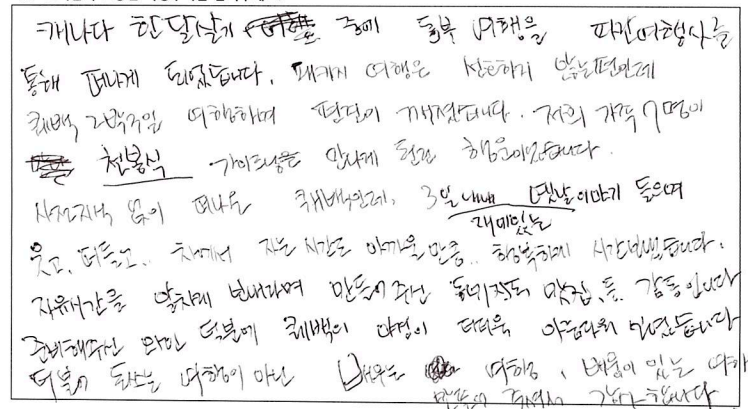 캐나다 한달살기 중에 동부 여행을 파란여행사를
통해 떠나게 되었습니다. 패키지 여행은 선호하지 않는편인데
퀘백 2박3일 여행하며 편단이 깨졌습니다. 저희 가족 7명이
천봉식 가이드님을 만나게 된건 행운이었습니다.
사전지식 없이 떠나온 퀘백인데, 3일내내 옛날이야기 들으며
재미있는
웃고, 떠들고.. 차에서 자는 시간도 아까울 만큼.. 행복하게 시간보냈습니다.
자유시간을 알차게 보내라며 만들어주신 동네지도 맛집.. 또 감동입니다
준비해주신 와인 덕분에 퀘백의 야경이 더더욱 아름다워 보였습니다
더불어 여행이 아닌 배우는 여행, 배움이 있는 여행
만들어 주셔서 감사합니다